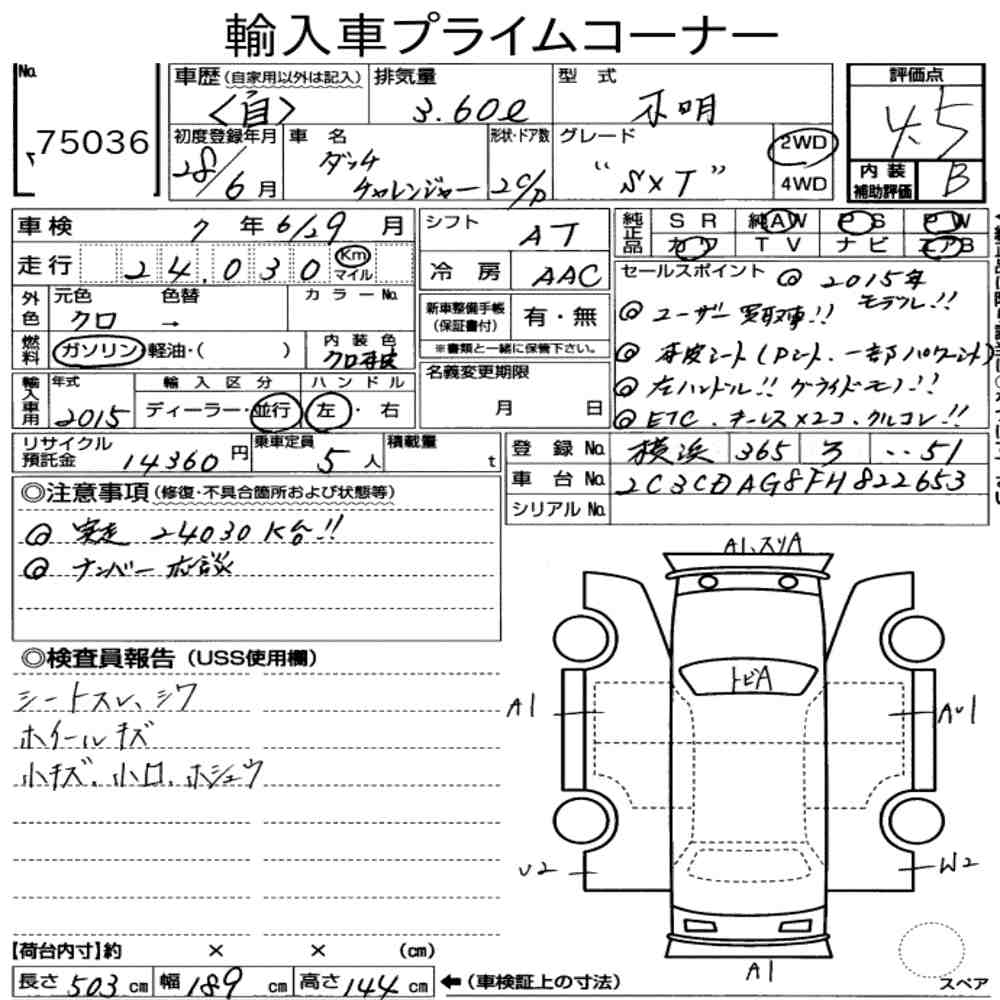 輸入車プライムコーナー
No. 75036
車歴(自家用以外は記入) 排気量 型式 評価点
〈自〉 3.60ℓ 不明 4.5
初度登録年月 車名 形状・ドア数 グレード 2WD
28/6月 ダッヂ チャレンジャー 2C/P "SXT" 4WD
内装補助評価 B
車検 7年6/29月 シフト AT
純正品 SR 純AW PS PW
カワ TV ナビ エアB
走行 24,030 Km マイル 冷房 AAC
セールスポイント ◎2015年モデル!!
外色 元色 色替 カラーNo.
クロ →
新車整備手帳(保証書付) 有・無
※書類と一緒に保管下さい。
◎ユーザー買取車!!
燃料 ガソリン 軽油・( ) 内装色 クロ革
◎本皮シート(Dシート、一部パワーシート)
輸入車用 年式 輸入区分 ハンドル
2015 ディーラー・並行 左・右
名義変更期限 月 日
◎左ハンドル!!
◎ETC、キーレス×2コ、クルコン!!
リサイクル預託金 14360円 乗車定員 5人 積載量 t
登録No. 横浜 365 ‥51
車台No. 2C3CDAG8FH822653
シリアルNo.
◎注意事項(修復・不具合箇所および状態等)
◎実走 24030K台!!
◎ナンバー応談
◎検査員報告(USS使用欄)
シートスレ、シワ
ホイールキズ
小キズ、小凹、ホシュウ
A1、スリA
トビA
A1
AU1
U2
W2
A1
【荷台内寸】約 × × (cm)
長さ503cm 幅189cm 高さ144cm ←(車検証上の寸法)
スペア